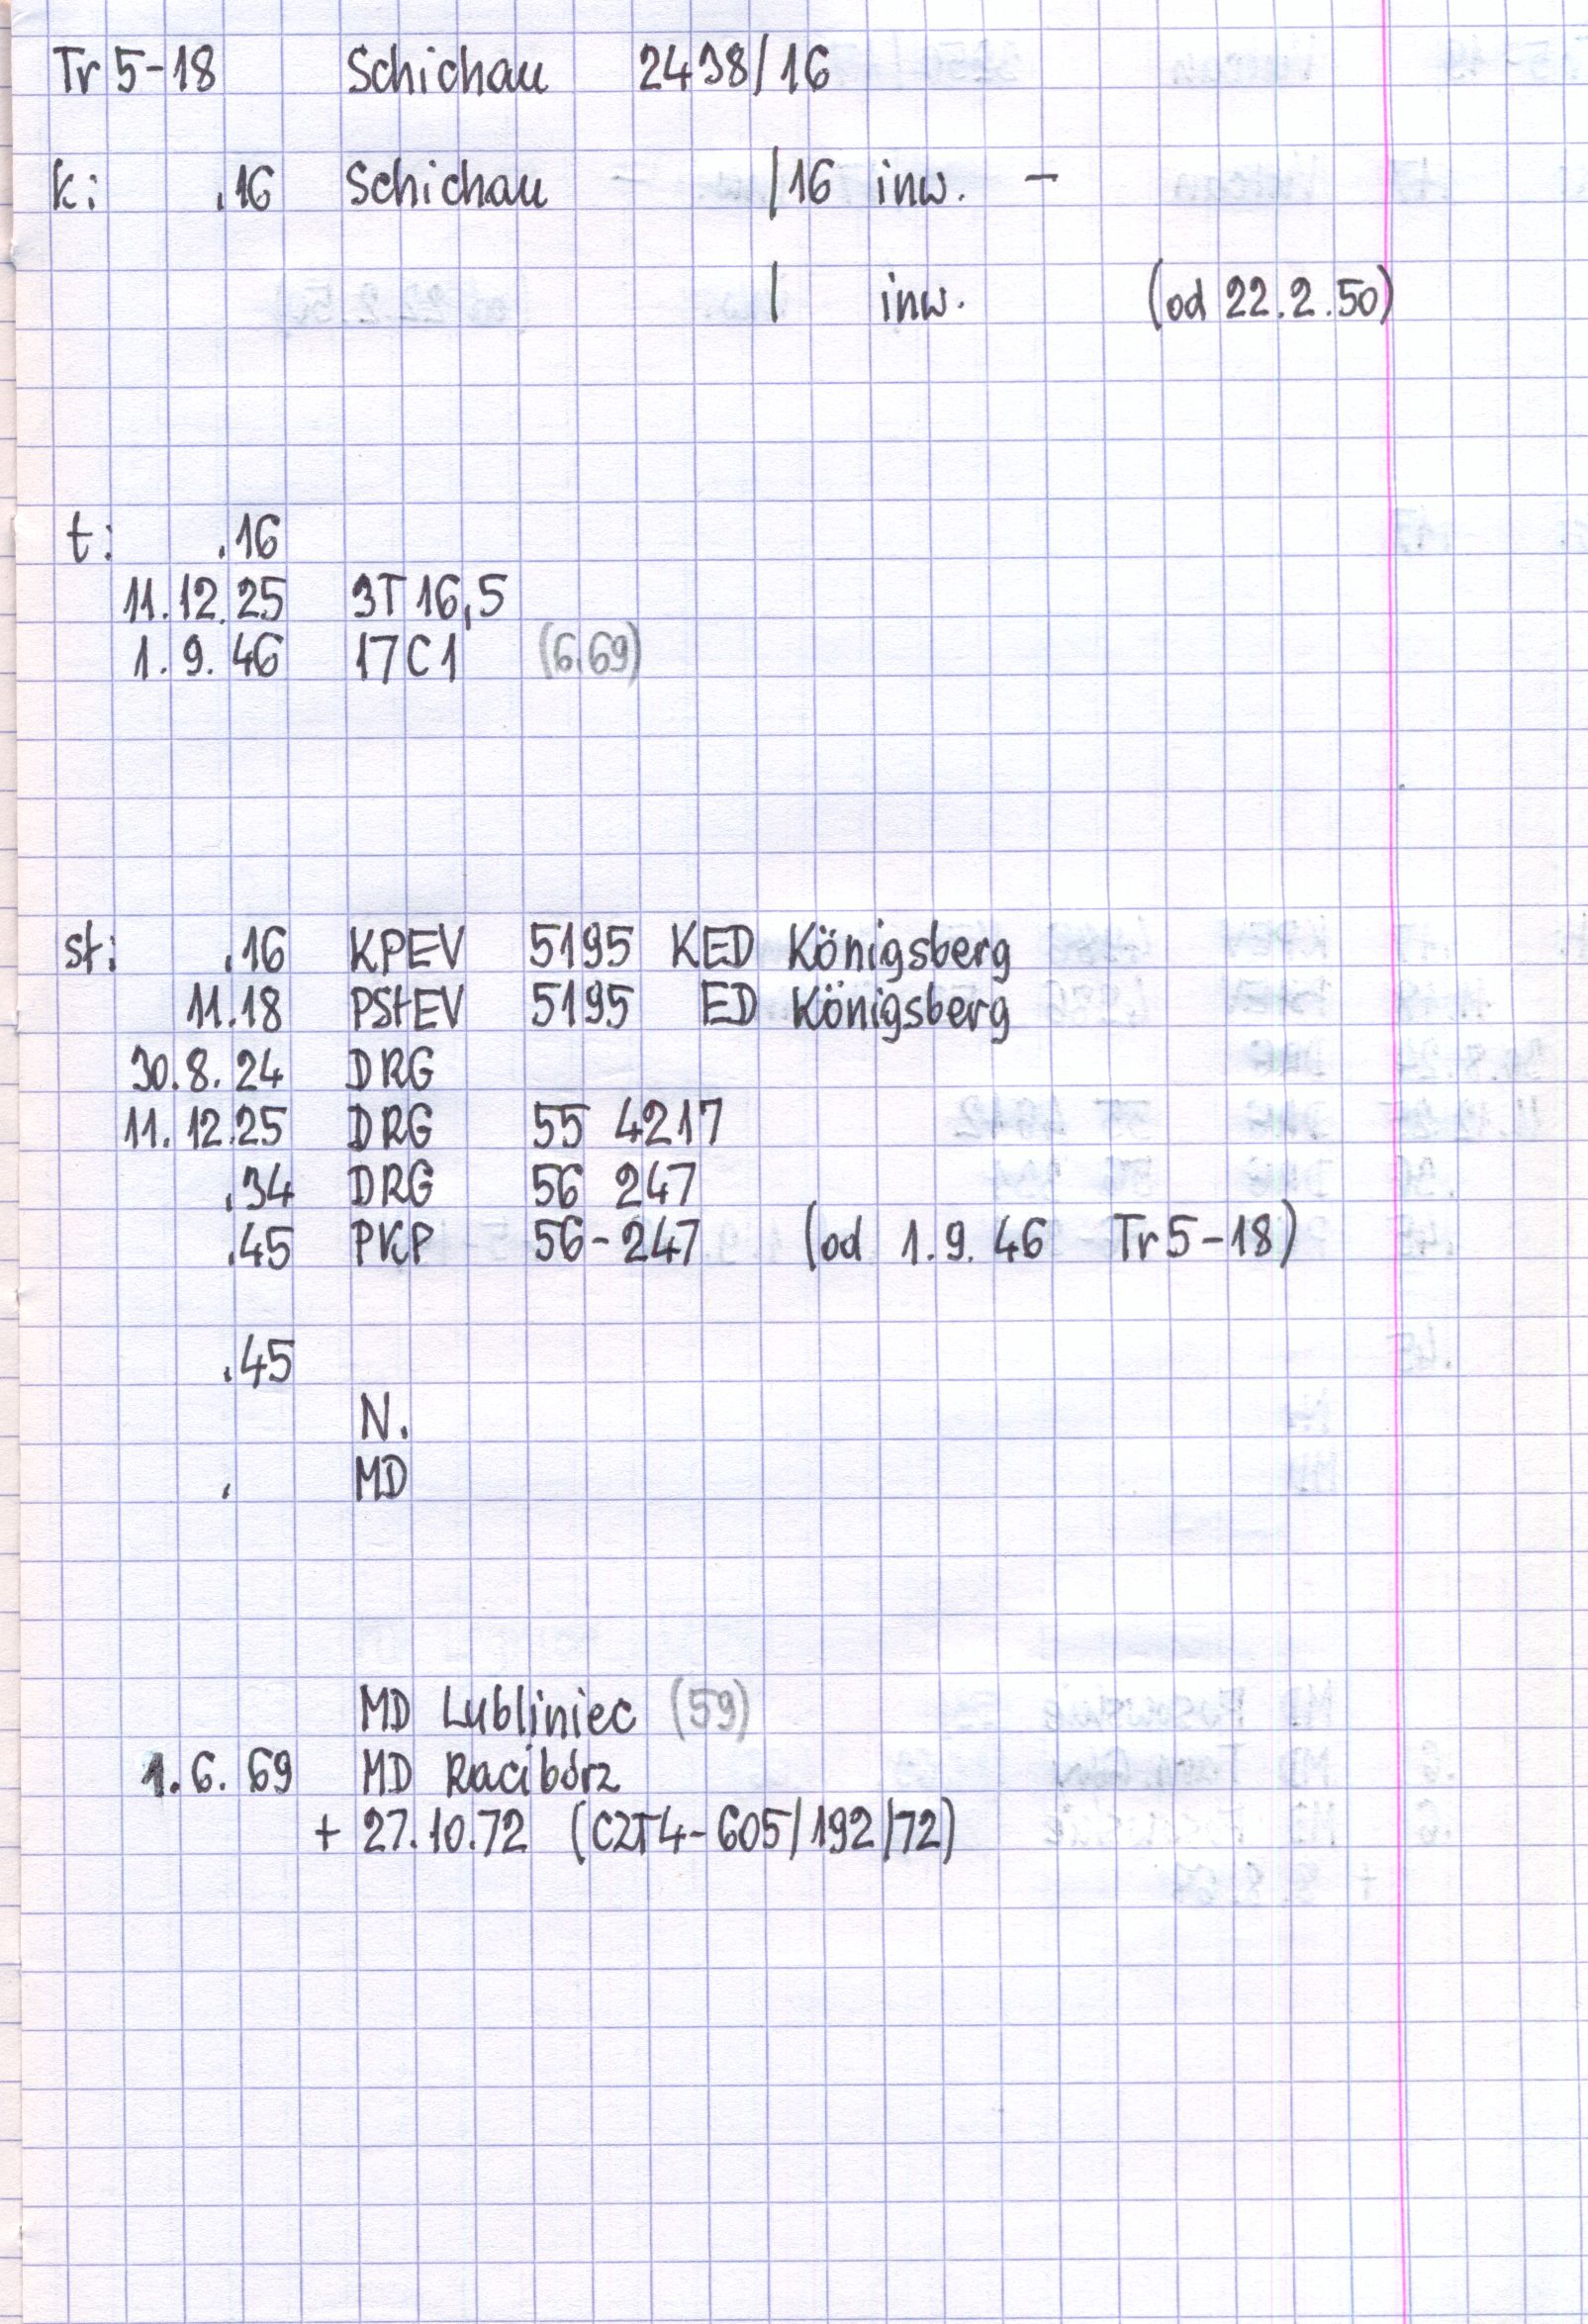 Tr 5-18 Schichau 2438/16
k: .16 Schichau /16 inw. -
/ inw. (od 22.2.50)
t: .16
11.12.25 3T 16,5
1.9.46 17C1 (6.69)
st: .16 KPEV 5195 KED Königsberg
11.18 PStEV 5195 ED Königsberg
30.8.24 DRG
11.12.25 DRG 55 4217
.34 DRG 56 247
.45 PKP 56-247 (od 1.9.46 Tr 5-18)
.45
N.
. MD
MD Lubliniec (59)
1.6.69 MD Racibórz
+ 27.10.72 (CZT4-605/192/72)